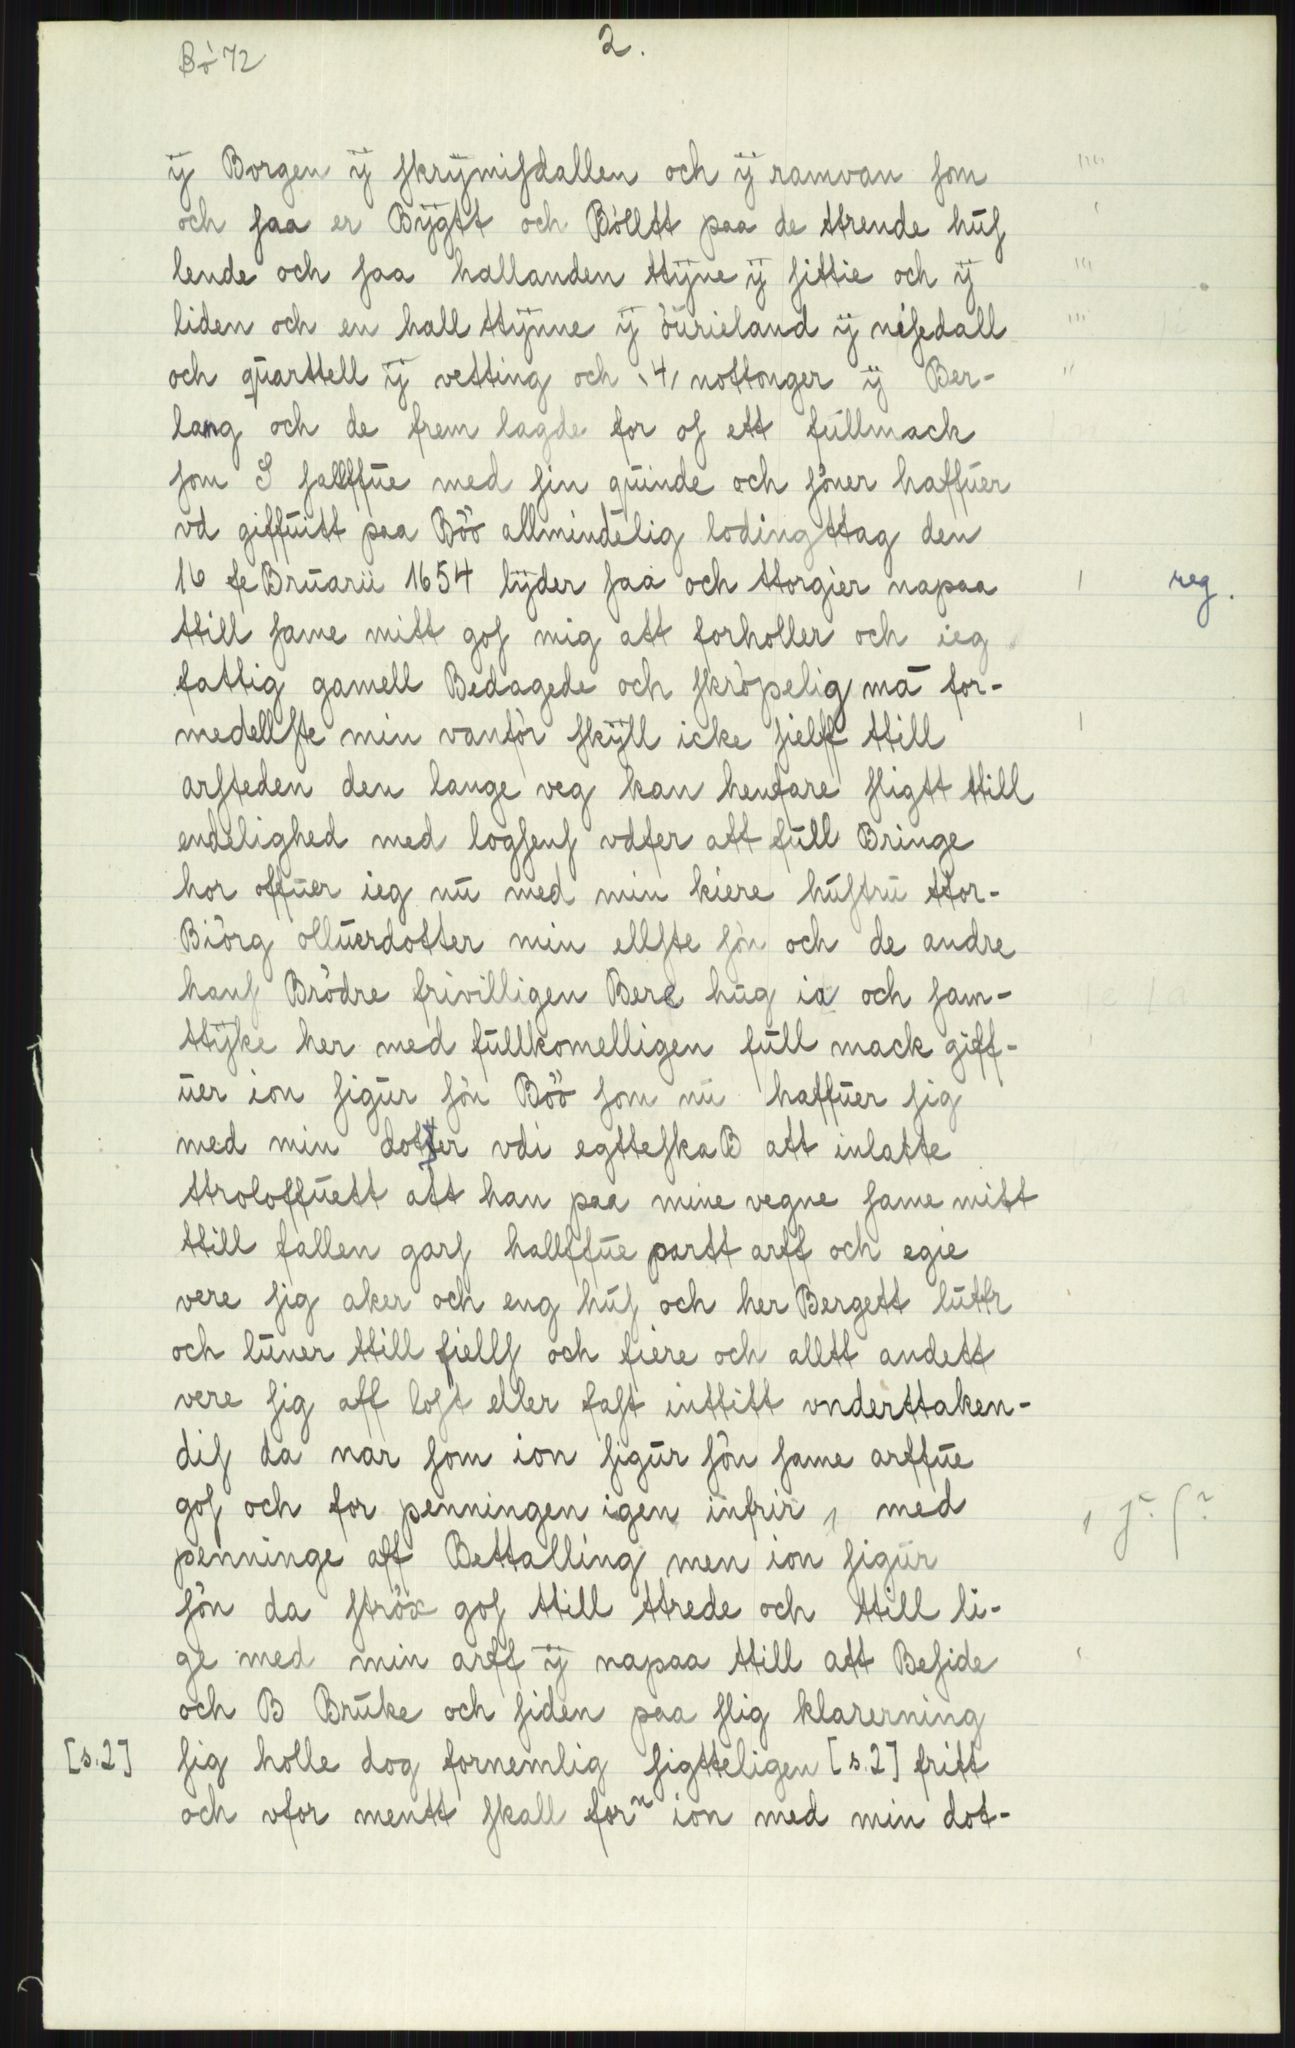 Bö 72
2.
ÿ Borgen ÿ ſkrÿmiſdallen och ÿ ramvan ſom
och ſaa er Bÿgtt och Bölltt paa de ttrende huſ
lende och ſaa hallanden ttÿne ÿ ſittie och ÿ
liden och en hall ttÿnne ÿ öurieland ÿ neſedall
och quarttell ÿ vetting och 4 nottonger ÿ Ber-
lang och de frem lagde for oſ ett fullmack
ſom S ſallffue med ſin quinde och ſöner haffuer
vd giffuitt paa Böö allmindelig lodingttag den
16 feBruarii 1654 lÿder ſaa och ttorgier napaa
ttill ſame mitt goſ mig att forholler och ieg
fattig gamell Bedagede och ſkröpelig må for-
medellſte min vanför ſkÿll icke ſielff ttill
arſteden den lange veg kan henfare ſligtt ttill
endelighed med logſenſ vdfer att full Bringe
hor offuer ieg nu med min kiere huſtru ttor-
Biörg olluerdotter min ellſte ſön och de andre
hanſ Brödre frivilligen Bere hug ia och ſam-
ttÿke her med fullkomelligen full mack giff-
uer ion ſigur ſön Böö ſom nu haffuer ſig
med min dotter vdi egtteſkaB att inlatte
ttroloffuett att han paa mine vegne ſame mitt
ttill fallen garſ hallffue partt arff och egie
vere ſig aker och eng huſ och her Bergett luttr
och luner ttill fiellſ och fiere och alltt andett
vere ſig aff loſt eller faſt inttitt vnderttaken-
diſ da nar ſom ion ſigur ſön ſame arffue
goſ och for penningen igen infrir , med
, j~. ſ~?
penninge aff Bettalling men ion ſigur
ſön da ſtröx goſ ttill ttrede och ttill li-
ge med min arff ÿ napaa ttill att Beſide
och B Bruke och ſiden paa ſlig klarerning
[s.2] ſig holle dog fornemlig ſigtteligen [s.2] fritt
och vfor mentt ſkall forⁿ ion med min dot-
reg.